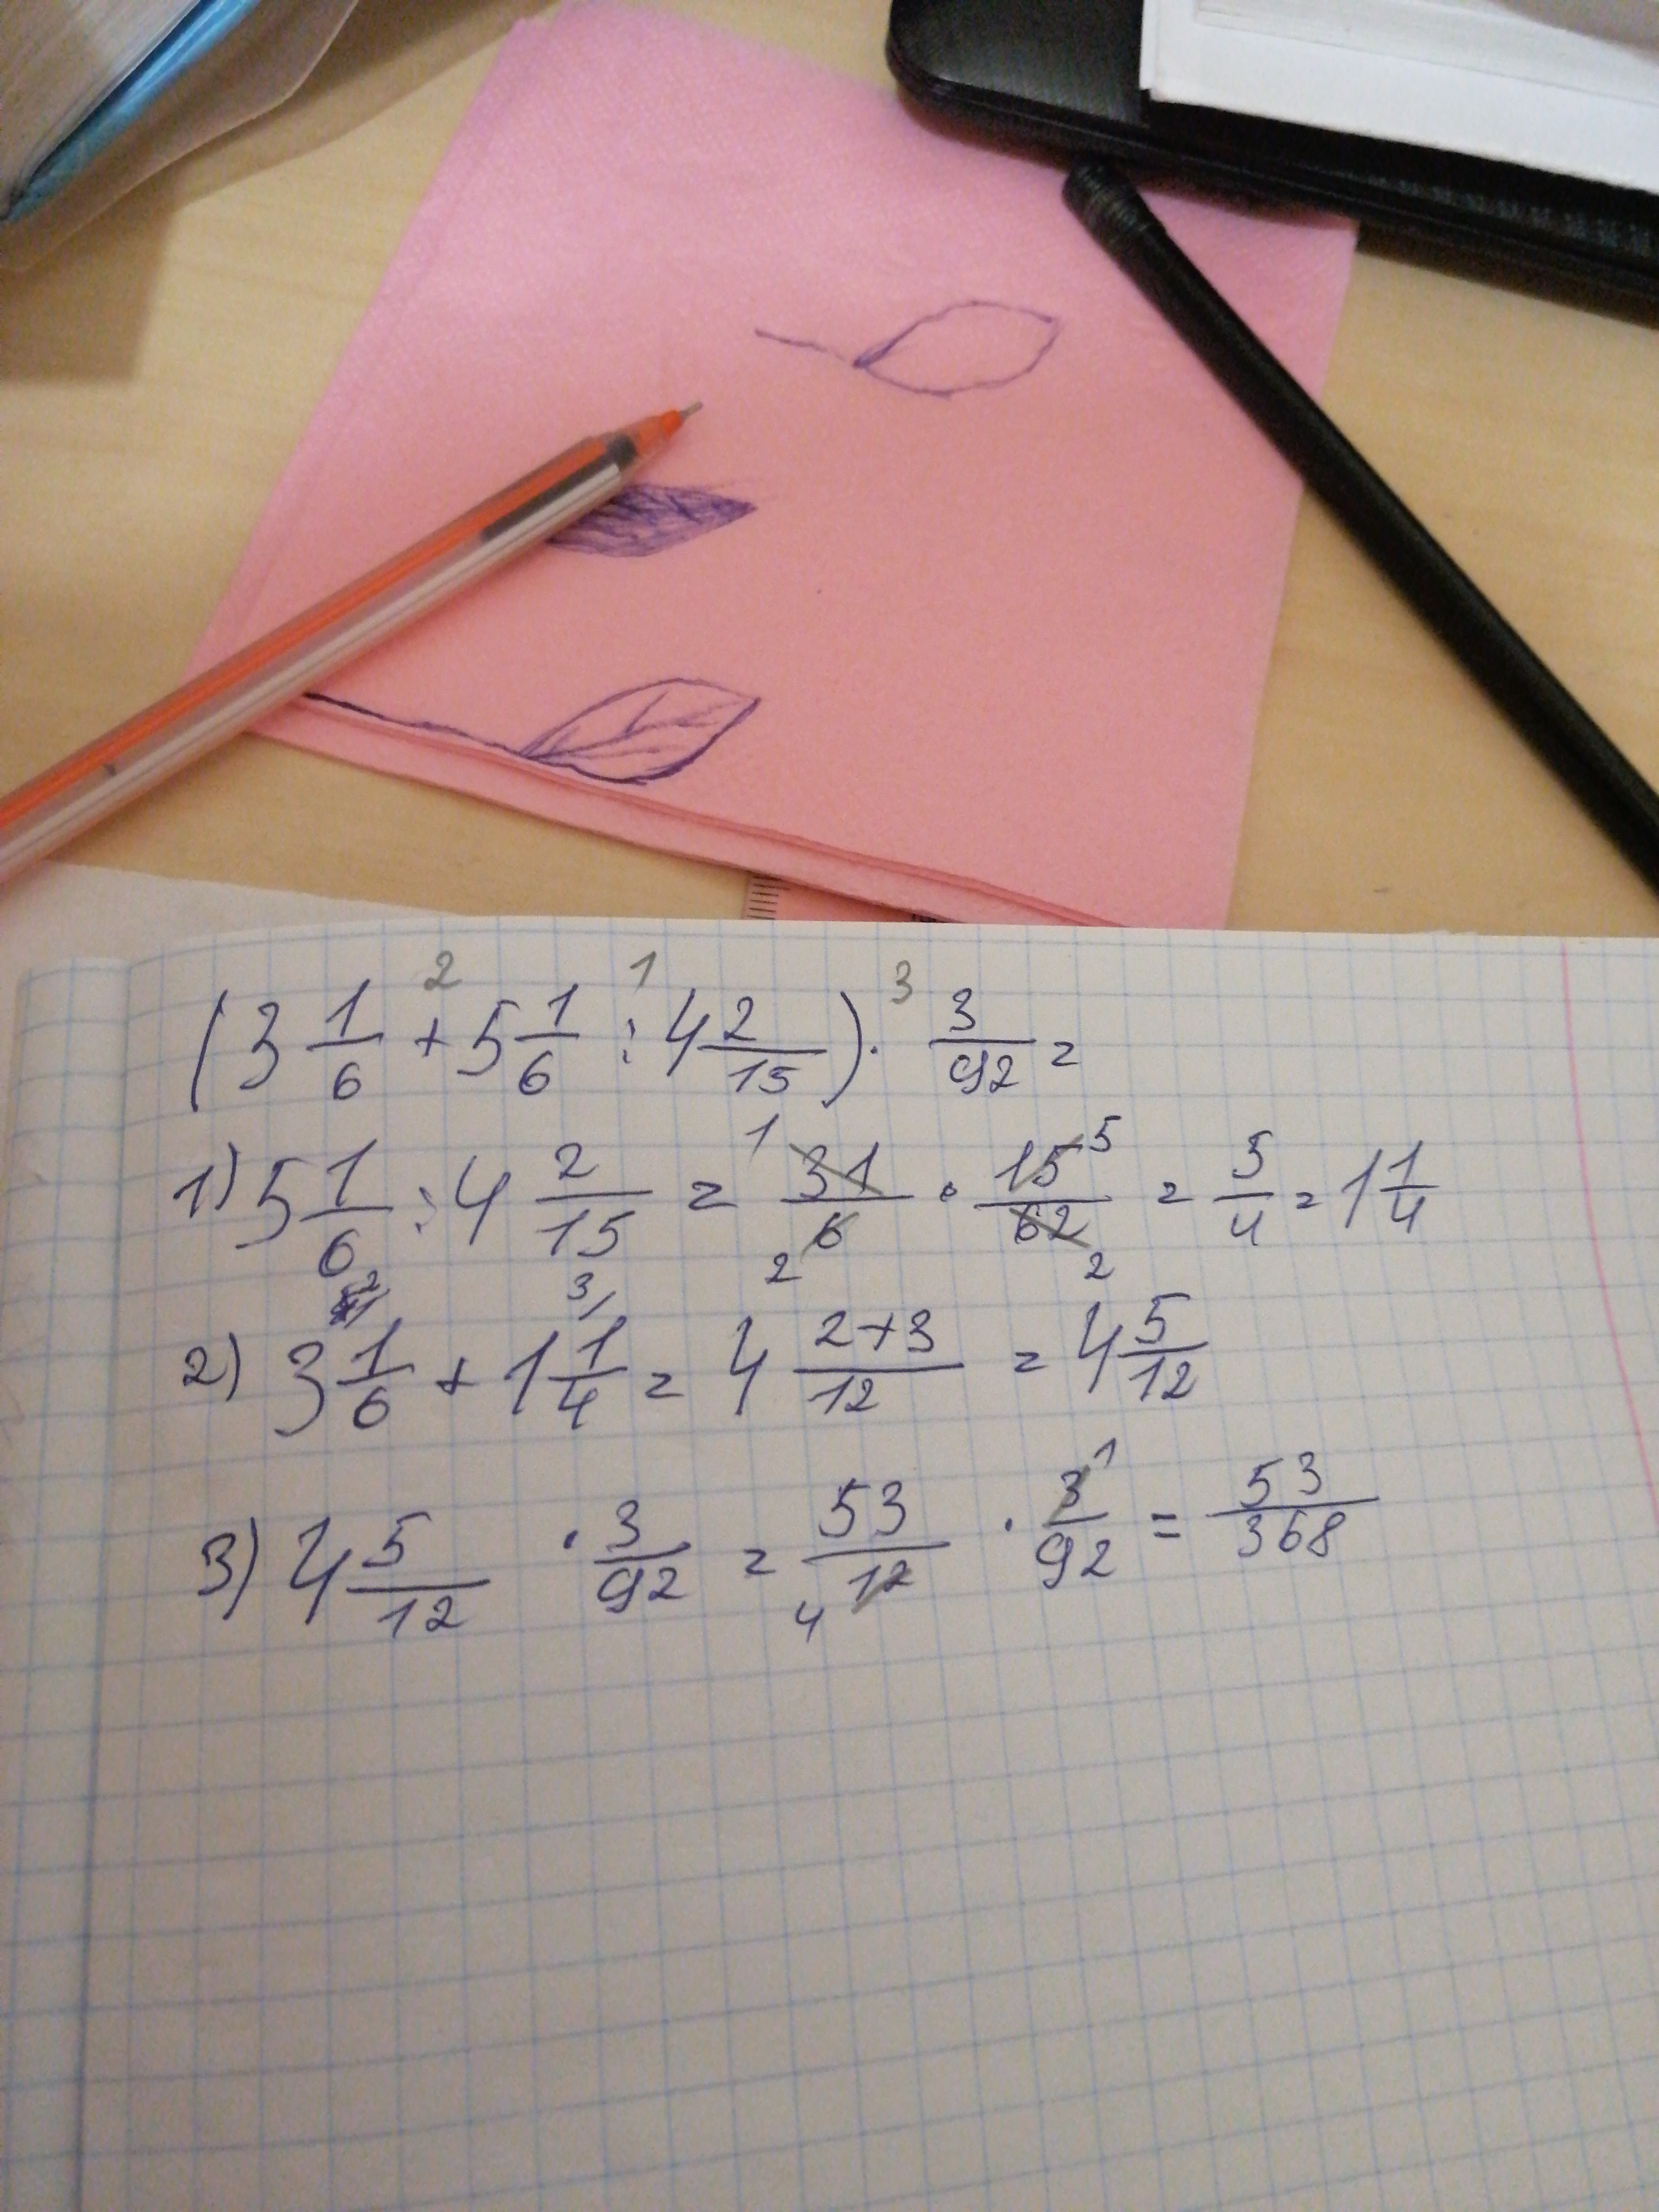 2 1 3
(3 1/6 + 5 1/6 : 4 2/15) · 3/92 =
1) 5 1/6 : 4 2/15 = 1 31/6 2 · 15 5/62 2 = 5/4 = 1 1/4
2) 3 1/6 2 + 1 1/4 3/ = 4 2+3/12 = 4 5/12
3) 4 5/12 · 3/92 = 53/12 4 · 3 1/92 = 53/368